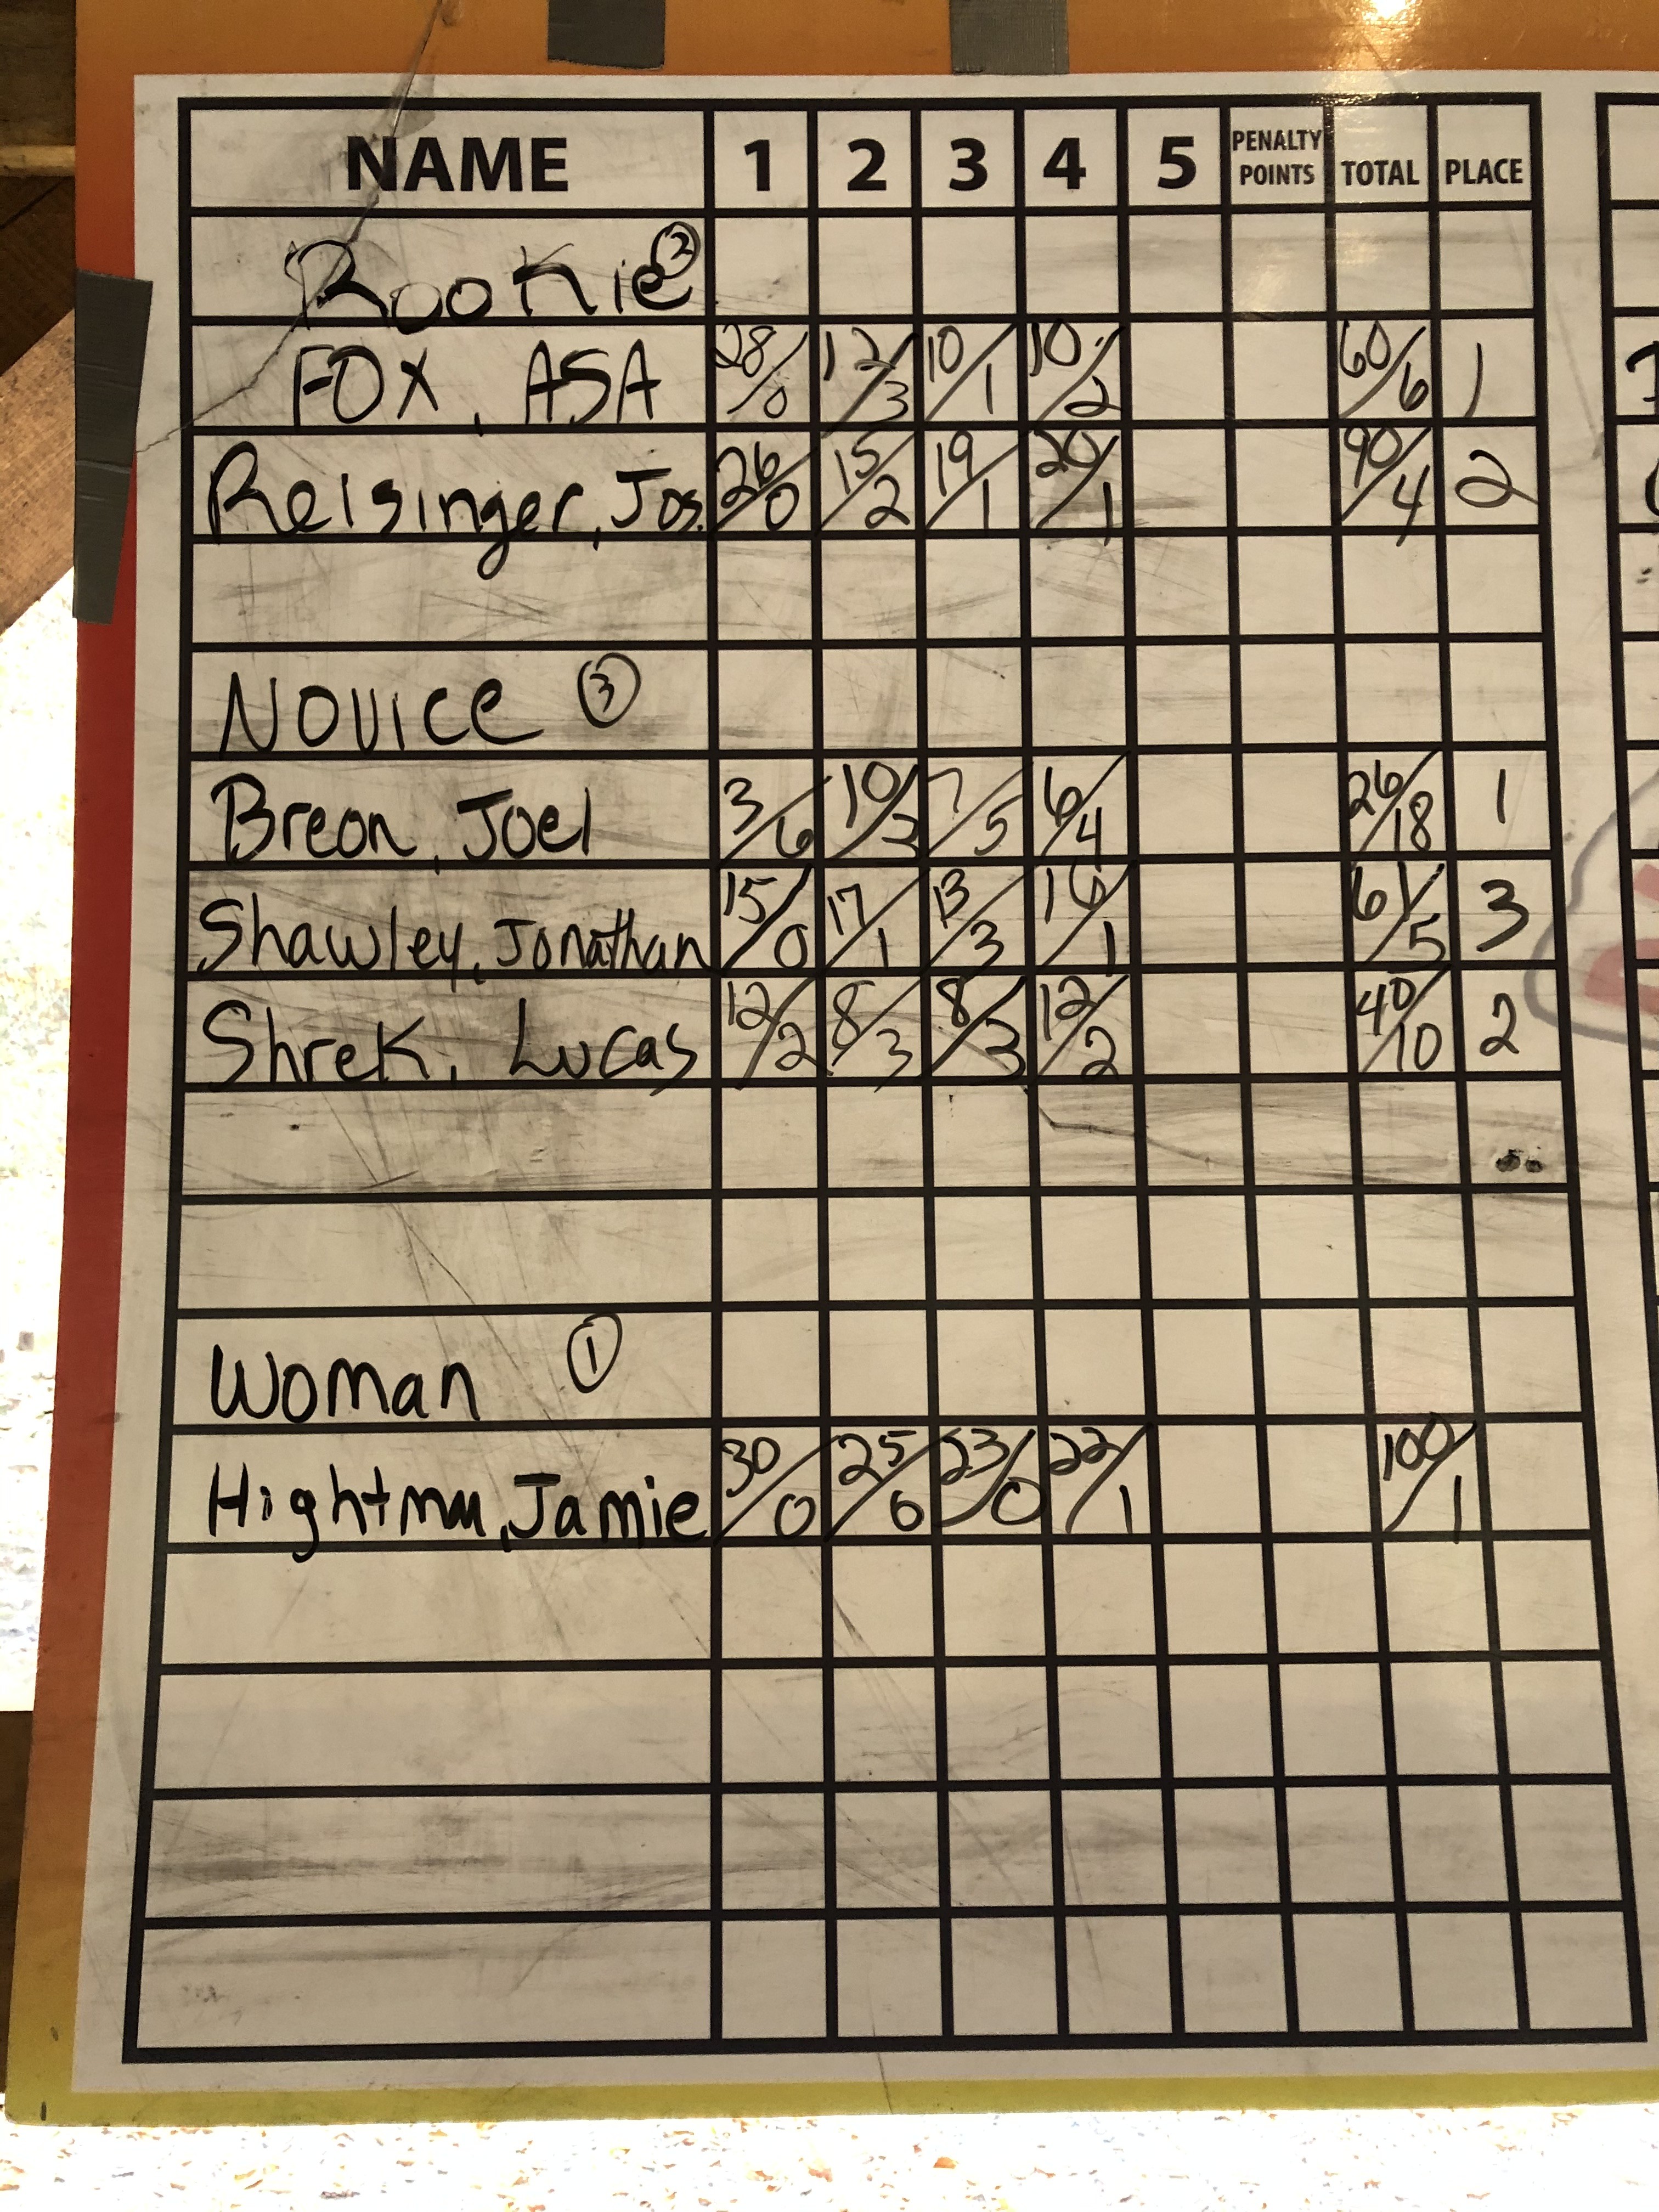 NAME 1 2 3 4 5 PENALTY POINTS TOTAL PLACE
Rookie 2
FOX, ASA 28/0 12/3 10/1 10/2 60/6 1
Reisinger, Jos. 26/0 15/2 19/1 20/1 90/4 2
Novice 3
Breon, Joel 3/6 10/3 7/5 6/4 26/18 1
Shawley, Jonathan 15/0 17/1 13/3 16/1 61/5 3
Shrek, Lucas 12/2 8/3 8/3 12/2 40/10 2
Woman 1
Jamie 30/0 25/0 23/0 22/1 100/1